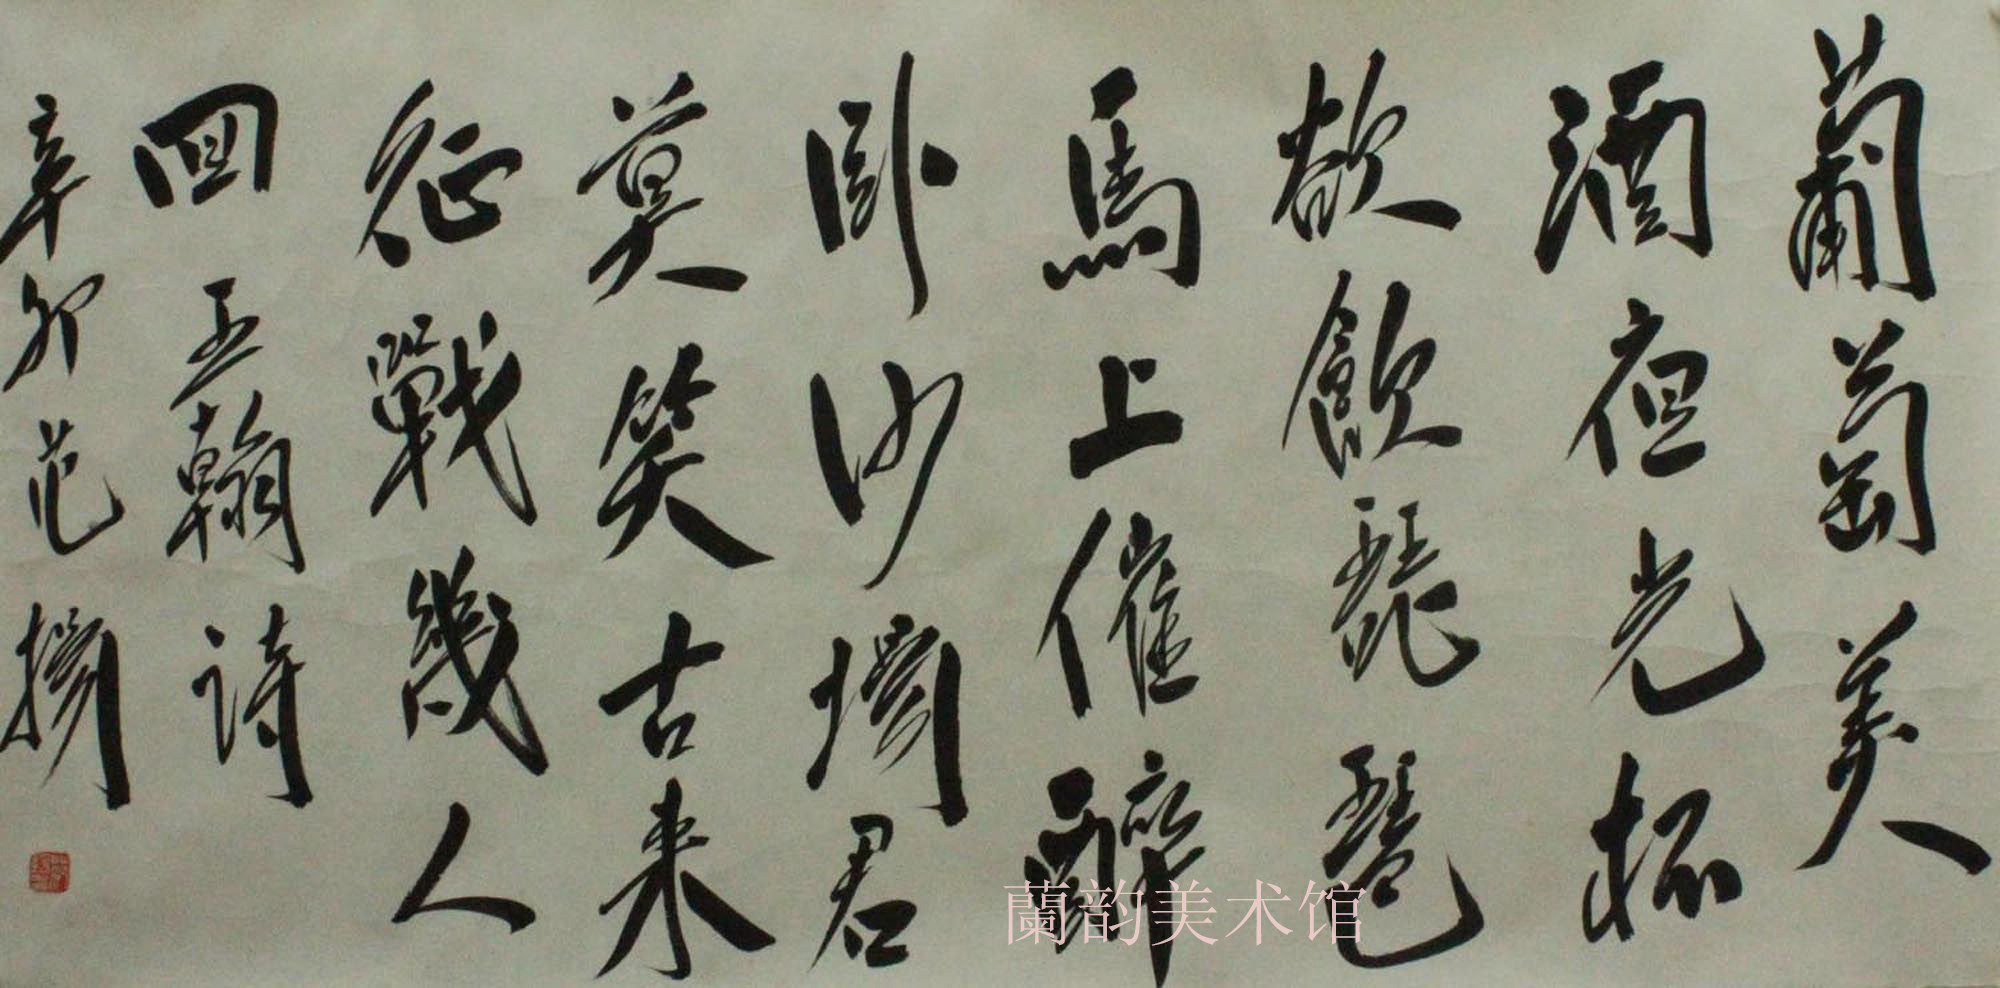 葡萄美
酒夜光杯
欲飲琵琶
馬上催醉
卧沙場君
莫笑古来
征戰幾人
回王翰詩
辛卯范揚
蘭韵美术馆